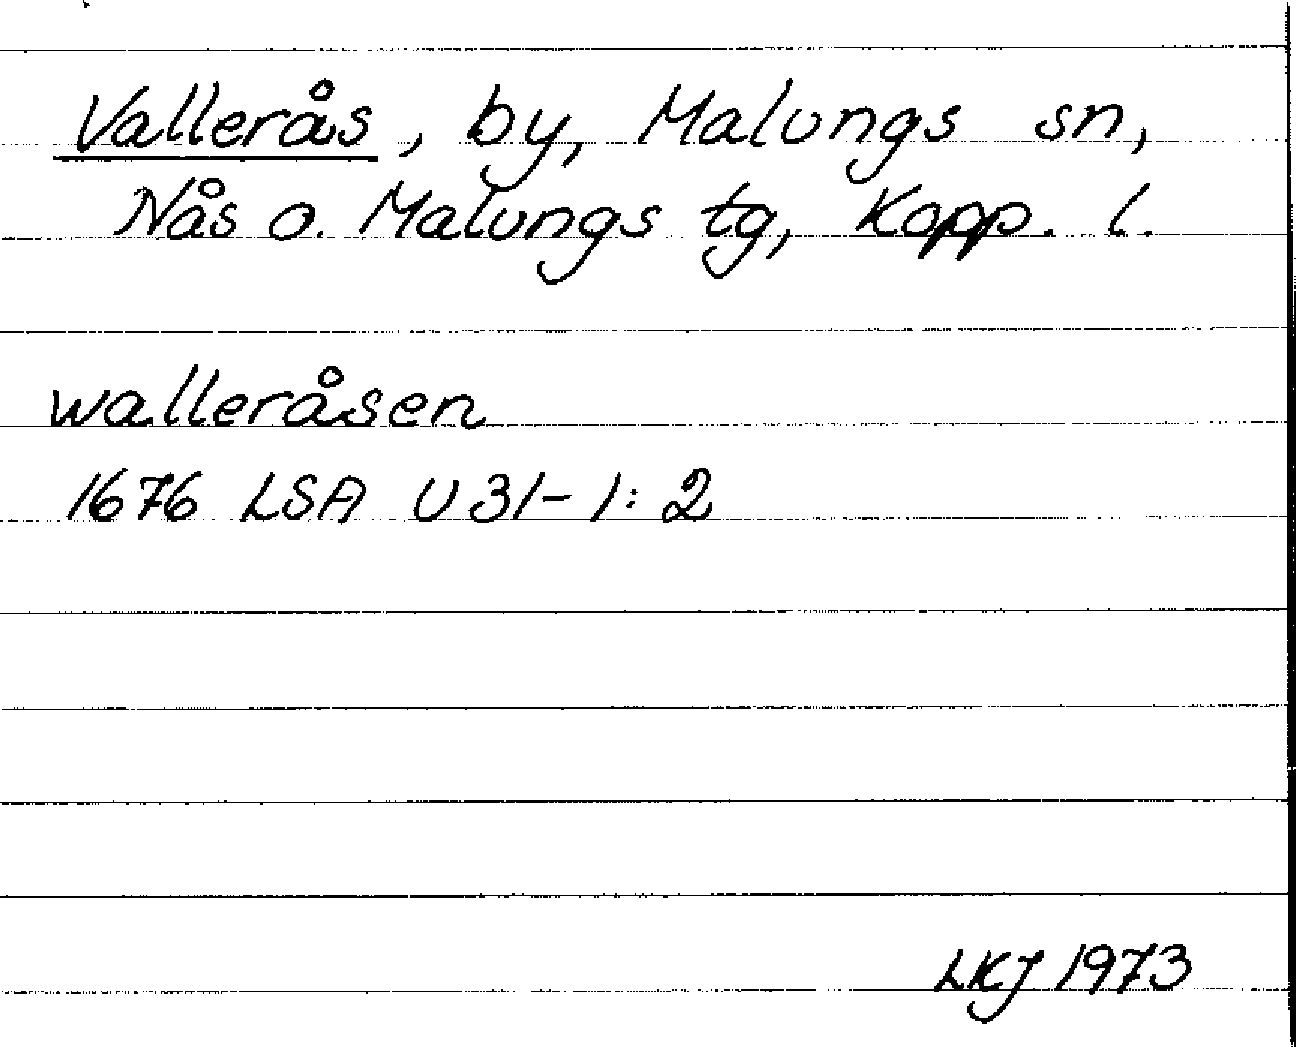 Vallerås, by, Malungs sn,
Nås o. Malungs tg, Kopp. l.
walleråsen
1676 LSA U 31-1:2
LKJ 1973